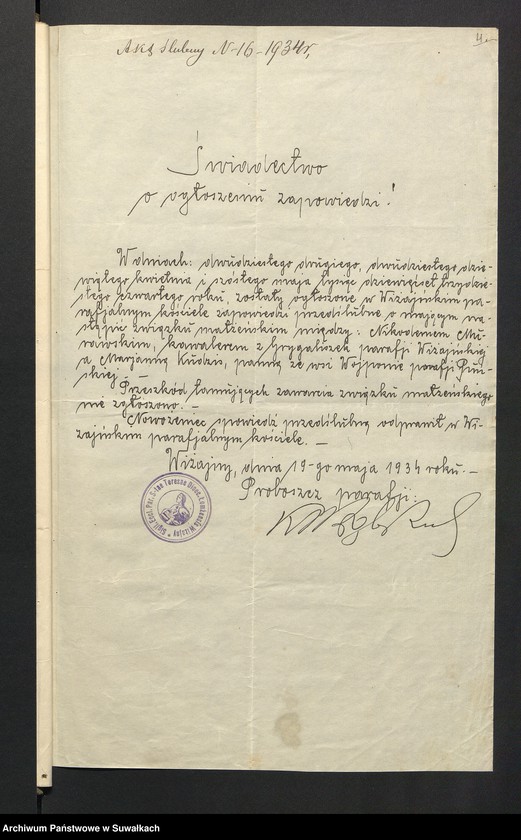 Akt ślubny N-16-1934r,
4
Świadectwo
o ogłoszeniu zapowiedzi!
W dniach: dwudziestego drugiego, dwudziestego dzie-
wiątego kwietnia i szóstego maja tysiąc dziewięćset trzydzie-
stego czwartego roku, zostały ogłoszone w Wiżajńskim pa-
rafjalnym kościele zapowiedzi przedślubne o mającym na-
stąpić związku małżeńskim między: Nikodemem Mu-
rawskim, kawalerem z Grygaliszek parafji Wiżajńskiej
a Marjanną Kudzis, panną ze wsi Wojponie parafji Puń-
skiej. —
Przeszkód tamujących zawarcia związku małżeńskiego
nie zgłoszono. —
Nowożeniec spowiedź przedślubną odprawił w Wi-
żajńskim parafjalnym kościele. —
Wiżajny, dnia 19-go maja 1934 roku. —
Proboszcz parafji:
Archiwum Państwowe w Suwałkach